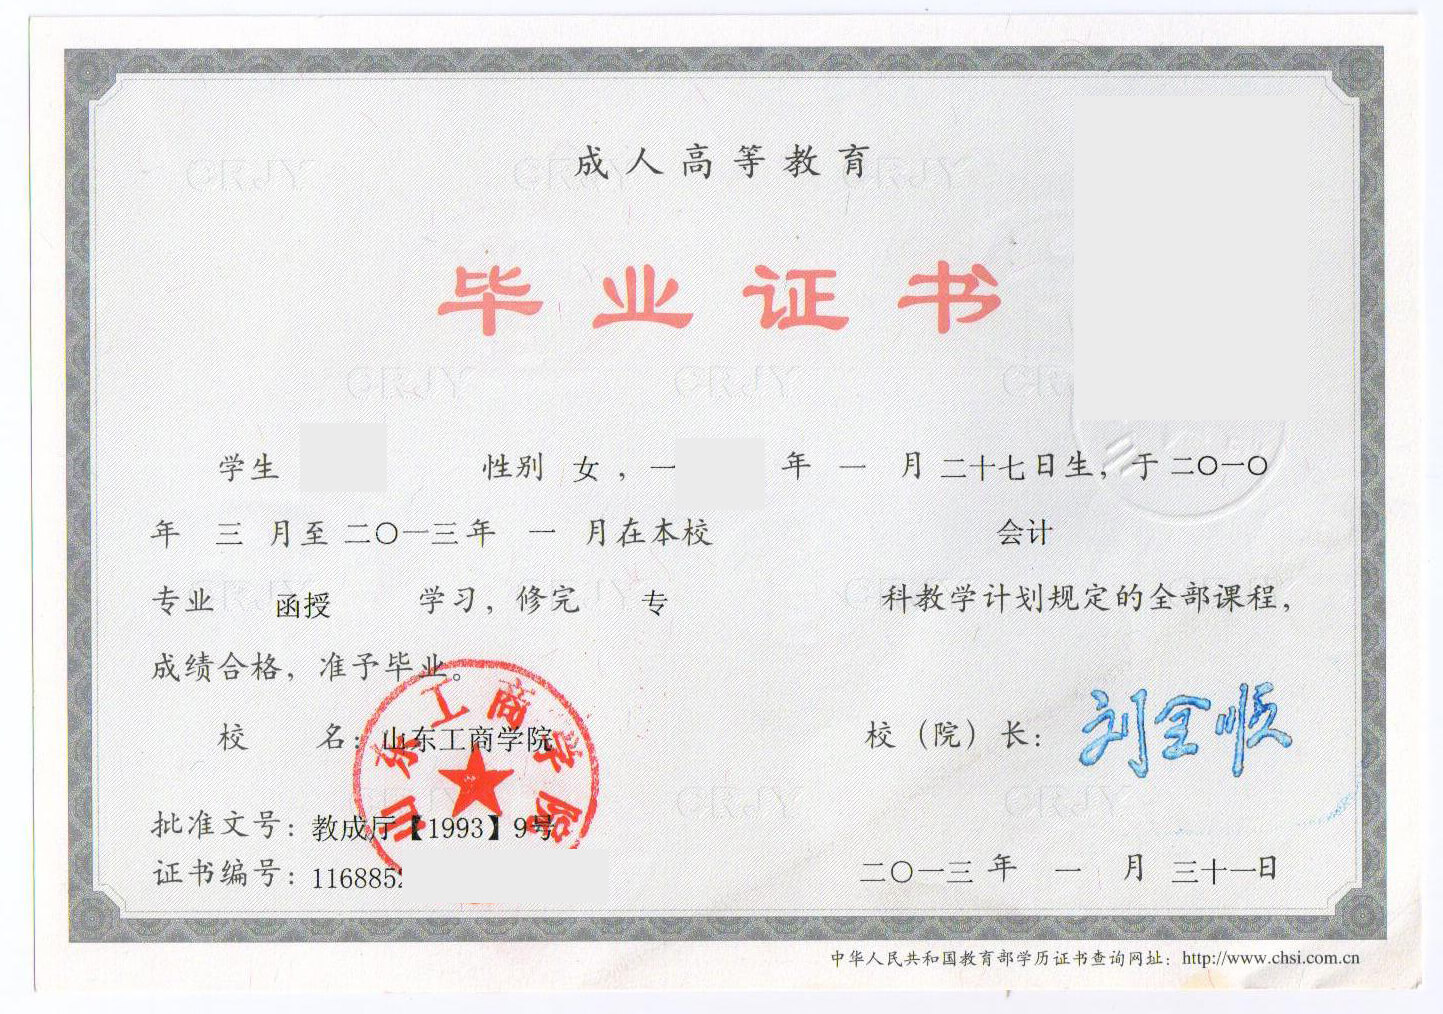 成人高等教育
毕业证书
学生 性别 女，一 年 一 月二十七日生，于二〇一〇
年 三 月至二〇一三年 一 月在本校 会计
专业 函授 学习，修完 专 科教学计划规定的全部课程，
成绩合格，准予毕业。
校 名：山东工商学院 校（院）长：刘全顺
山东工商学院
批准文号：教成厅【1993】9号
证书编号：1168852 二〇一三年 一 月 三十一日
中华人民共和国教育部学历证书查询网址：http://www.chsi.com.cn